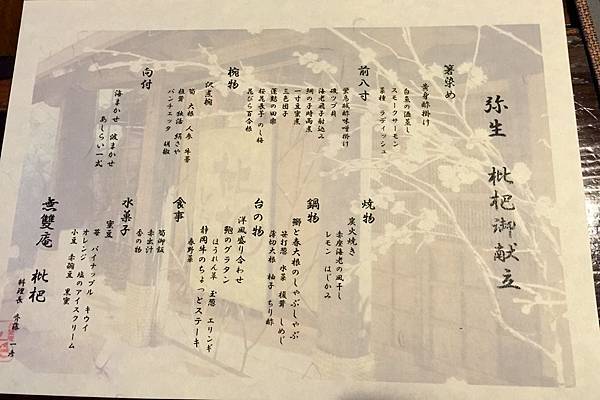 弥生 枇杷御献立
箸染め
黄身酢掛け
白魚の酒蒸し
スモークサーモン
菜種 ラディッシュ
前八寸
蛍烏賊酢味噌掛け
磯つぶ貝
海老艶子射込み
鯛の子時雨煮
一寸豆蜜煮
三色団子
蓮麩の田楽
桜花長芋 のし梅
花びら百合根
椀物
沢煮椀
筍 大根 人参 牛蒡
椎茸 独活 絹さや
パンチェッタ 胡椒
向付
海まかせ 波まかせ
あしらい一式
焼物
炭火焼き
赤座海老の風干し
レモン はじかみ
鍋物
鰤と春大根のしゃぶしゃぶ
笹打葱 水菜 椎茸 しめじ
薄切大根 柚子 ちり酢
台の物
洋風盛り合わせ
鮑のグラタン
ほうれん草 玉葱 エリンギ
静岡牛のちょっとステーキ
春野菜
食事
筍御飯
赤出汁
香の物
水菓子
蜜豆
苺 パイナップル キウイ
オレンジ 塩のアイスクリーム
小豆 赤豌豆 黒蜜
無雙庵 枇杷
料理長